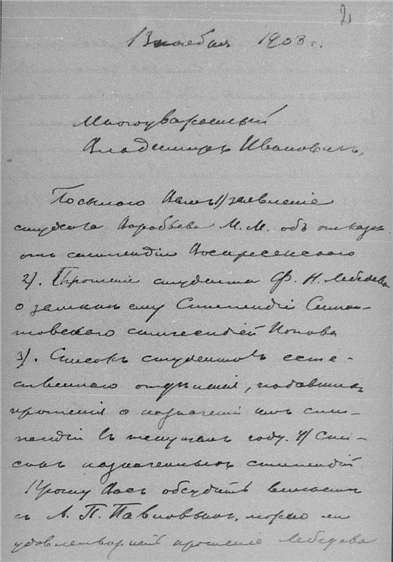 2
13 ноября 1903 г.
Многоуважаемый
Владимиръ Ивановичъ,
Посылаю Вамъ 1) заявленіе
студента Воробьева М. М. объ отказѣ
отъ стипендіи Воскресенскаго
2). Прошеніе студента Ф. Н. Лебедева
о замѣнѣ ему стипендіи
стипендіей Попова
3). Списокъ студентовъ есте-
ственнаго отдѣленія, подавшихъ
прошенія о назначеніи имъ сти-
пендій въ текущемъ году. 4) Спи-
сокъ назначенныхъ стипендій
Прошу Васъ обсудить вмѣстѣ
съ А. П. Павловымъ, можно ли
удовлетворить прошеніе Лебедева